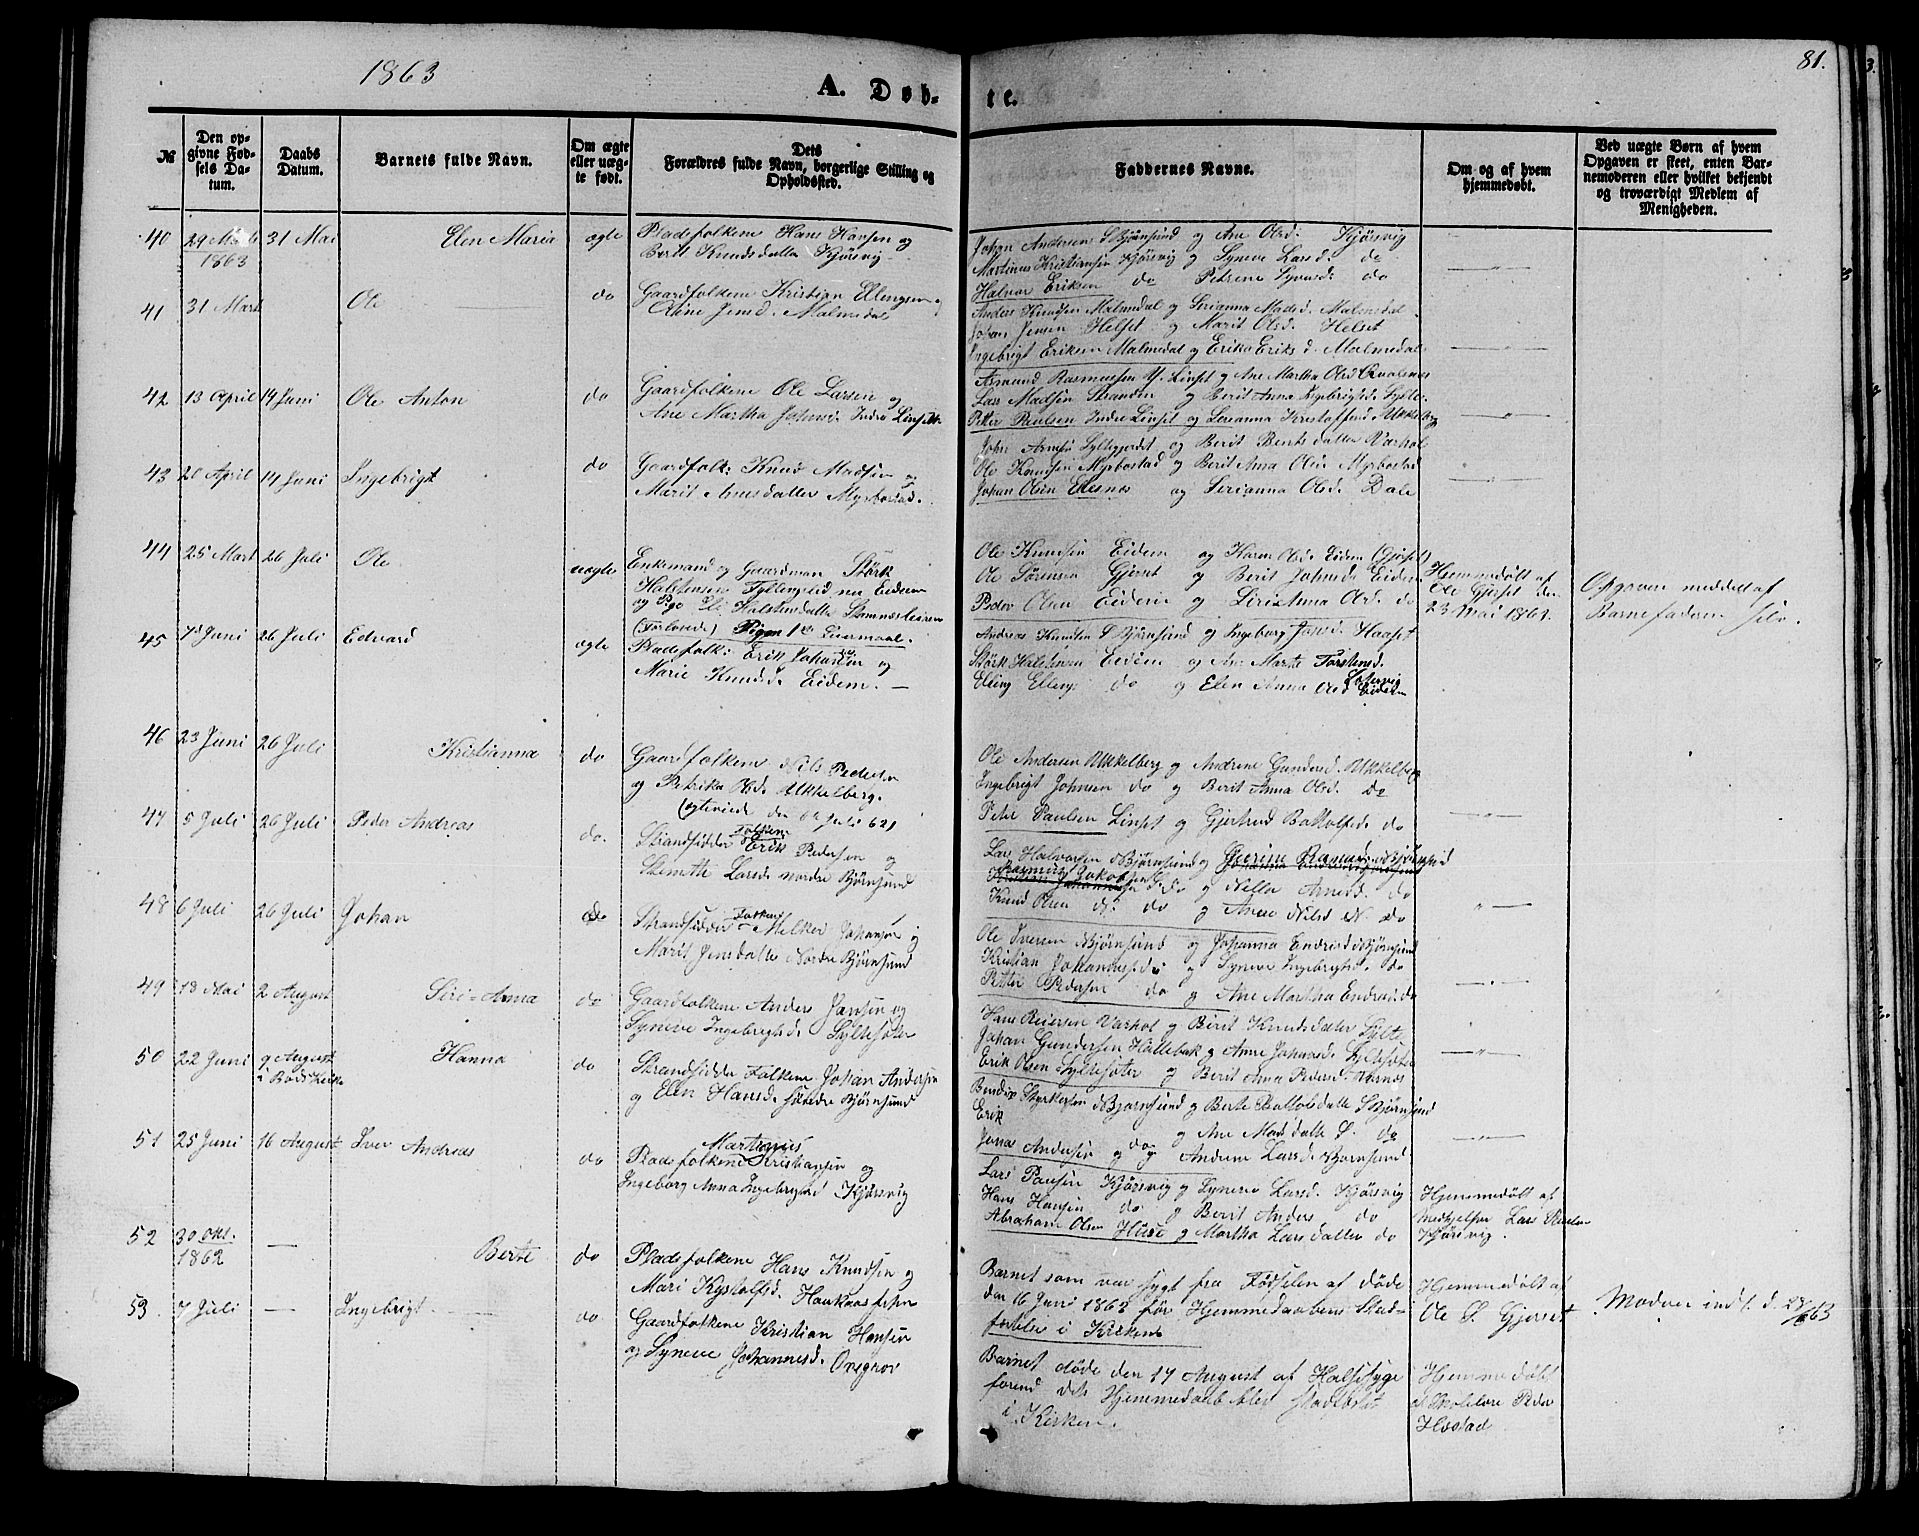 1863
A. Døb-
te.
81.
№
Den op-
givne Fød-
sels Da-
tum.
Daabs
Datum.
Barnets fulde Navn.
Om ægte
eller uæg-
te født.
Dets
Forældres fulde Navn, borgerlige Stilling og
Opholdssted.
Faddernes Navne.
Om og af hvem
hjemmedøbt.
Ved uægte Børn af hvem
Opgaven er skeet, enten Bar-
nemoderen eller hvilket bekjendt
og troværdigt Medlem af
Menigheden.
40 29 Marts 31 Mai Elen Maria ægte Pladsfolkene Hans Hansen og
1863 Berit Knudsdatter Kjørsvig
Johan Andersen S Bjørnsund og Ane Olsd. Kjørsvig
Martinus Kristiansen Kjørsvig og Syneve Larsd. do
Halvor Eriksen do Petrine do
41 31 Marts Ole do Gaardfolkene Kristian Ellingsen og
Ane Jensd. Malmedal
Anders Knudsen Malmedal og Serianna Madsd. Malmedal
Johan Jensen Helset og Marit Olsd. Helset
Ingebrigt Eriksen Malmedal og Erika Eriksd. Malmedal
42 13 April 14 Juni Ole Anton do Gaardfolkene Ole Larsen og
Ane Martha Johansd. Indre Linset
Asmund Rasmussen Y. Linset og Ane Martha Olsd
Lars Madsen Stranden og Berit Anna Ingebrigtsd. Sylte
Peter Paulsen Indre Linset og Serianna Kristoffersd. Ukkelberg
43 20 April 14 Juni Ingebrigt do Gaardfolk: Knud Madsen og
Marit Arnesdatter Myrbostad.
John Arnesen Syltegjerdet og Berit Berthsdatter Varhol
Ole Knudsen Myrbostad og Berit Anna Olsd. Myrbostad
Johan Olsen og Serianna Olsd. Dale
44 25 Mart 26 Juli Ole uægte Enkemand og Gaardman Størk
Halstensen Fyllingslid nu Eidem
og Pige Halstensdatter
(Forlovede) Pigens 1te Leiermaal.
Ole Knudsen Eidem og Karen Olsd. Eidem (Gjerset)
Ole Sørensen Gjerset og Berit Johnsd. Eidem
Peder Olsen Eidem og Siri Anna Olsd. do
Hjemmedøbt af
Ole Gjerset den
23 Mai 1863.
Opgaven meddelt af
Barnefaderen selv.
45 7de Juni 26 Juli Edvard ægte Pladsfolk: Erik Johansen og
Marie Knudsd. Eidem.
Andreas Knudsen S Bjørnsund og Ingeborg Jonsd. Haaset
Størk Halstensen Eidem og Ane Marte Torstensd.
Elling Ellings do og Elen Anna Olsd. Eidem
46 23 Juni 26 Juli Kristianna do Gaardfolkene Nils Pedersen
og Petrika Olsd. Ukkelberg.
(ægteviede den Juli 62)
Ole Andersen Ukkelberg og Andrene Gundersd. Ukkelberg
Ingebrigt Johnsen do og Berit Anna Olsd. do
Peter Paulsen Linset og Gjertrud Bottolfsd. do
47 5 Juli 26 Juli Peder Andreas do. Strandsidder Folkene
Erik Pedersen og
Larsd. nordre Bjørnsund
Lars Halvorsen N Bjørnsund og
Rasmus Jakobsen do og Nille Arnesd. do
Knud Olsen N. do og Anne Nilsd N. do
48 6 Juli 26 Juli Johan do Strandsidder Folkene Melkior Johansen og
Marit Jensdatter Nordre Bjørnsund
Ole Iversen N Bjørnsund og Johanna Endresd N Bjørnsund
Kristian Johannesen do og Syneve Ingebrigtsd. do
Petter Pedersen do og Ane Martha Endresd. do
49 18 Mai 2 August Siri-Anna do Gaardfolkene Anders Jansen og
Syneve Ingebrigtsd. Syltesæter
Hans Reiersen Varhol og Berit Knudsdatter Sylte
Johan Gundersen Hallebak og Anne Johansd. Syltesæter
Erik Olsen Syltesæter og Berit Anna Pedersd. Varnes
50 22 Juni 9 August Hanna do Strandsidder Folkene Johan Andersen
i Bods Kirke og Elen Hansd. søndre Bjørnsund
Bendix Styrkersen N Bjørnsund og Berte Bottolsdatter S Bjørnsund
Erik do og Ane Madsdatter S. do
Jonas Andersen og do Andrene Larsd. N Bjørnsund
51 25 Juni 16 August Iver Andreas do Pladsfolkene Martinus Kristiansen og
Ingeborg Anna Ingebrigtsd Kjørsvig
Lars Paulsen Kjørsvig og Syneve Larsd. Kjørsvig
Hans Hansen do og Berit Anders do
Abraham Olsen Huse og Martha Larsdatter do
Hjemmedøbt af
Medhjelper Lars
Kjørsvig.
52 30 Okt. — Berte do Pladsfolkene Hans Knudsen og
1862 Mari Kristofsd. Haukaas
Barnet som var sygt fra Fødselen af døde
den 16 Juni 1863 før Hjemmedaabens Stad-
festelse i Kirken
Hjemmedøbt af
Ole S. Gjerset
53. 7 Juli — Ingebrigt do Gaardfolkene Kristian Hansen
og Syneve Johannesd.
Barnet døde den 17 August af Halssyge
forend dets Hjemmedaab blev stadfæstet
i Kirken.
Hjemmedøbt
af Skolelære Peder